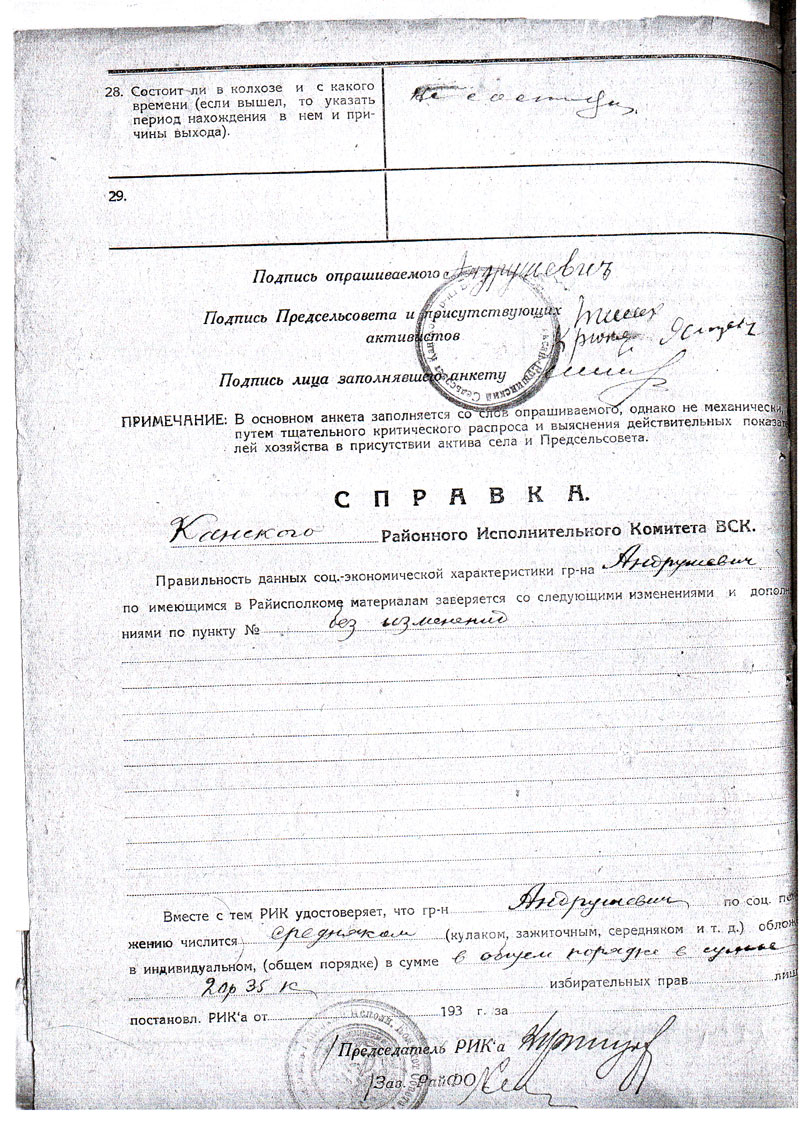 28. Состоит ли в колхозе и с какого
времени (если вышел, то указать
период нахождения в нем и при-
чины выхода).
не состоит
29.
Подпись опрашиваемого Андрушевич
Подпись Предсельсовета и присутствующих
активистов
Подпись лица заполнявшего анкету
ПРИМЕЧАНИЕ: В основном анкета заполняется со слов опрашиваемого, однако не механически,
путем тщательного критического распроса и выяснения действительных показат
лей хозяйства в присутствии актива села и Предсельсовета.
СПРАВКА.
Канского Районного Исполнительного Комитета ВСК.
Правильность данных соц.-экономической характеристики гр-на Андрушевич
по имеющимся в Райисполкоме материалам заверяется со следующими изменениями и дополн
ниями по пункту № без изменений
Вместе с тем РИК удостоверяет, что гр-н Андрушевич по соц. по
жению числится середняком (кулаком, зажиточным, середняком и т. д.) облож
в индивидуальном, (общем порядке) в сумме в общем порядке в сумме
20р 35 к избирательных прав лиш
постановл. РИК'а от 193 г. за
Председатель РИК'а
Зав. РайФО